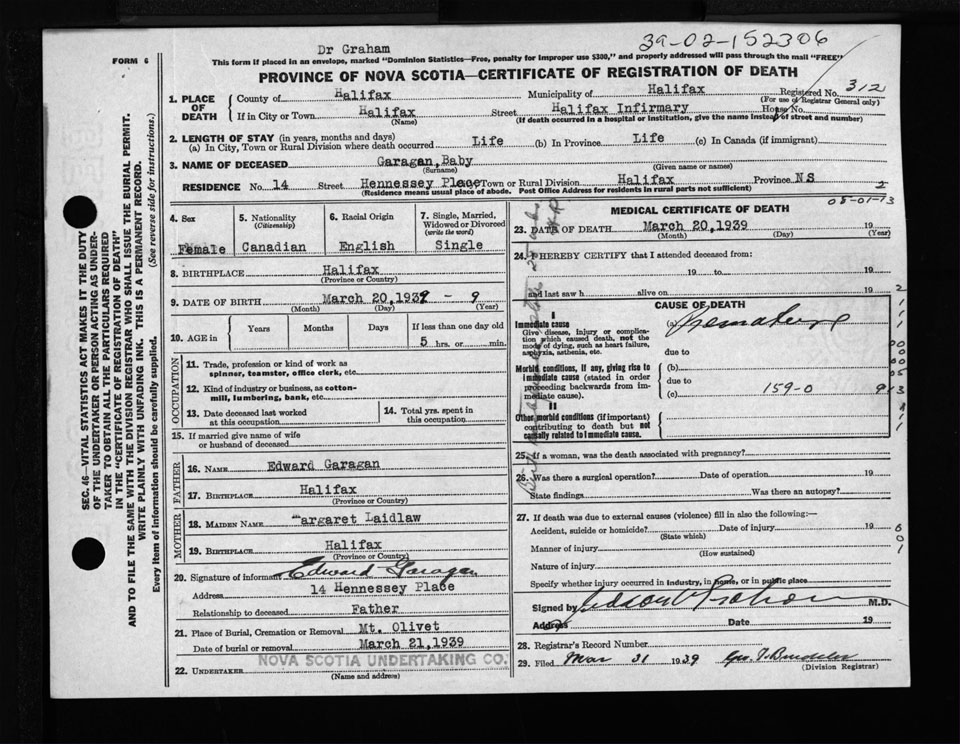 39-02-152306
Dr Graham
FORM 6
This form if placed in an envelope, marked "Dominion Statistics—Free, penalty for improper use $300," and properly addressed will pass through the mail "FREE"
PROVINCE OF NOVA SCOTIA—CERTIFICATE OF REGISTRATION OF DEATH
Registered No. 312
(For use of Registrar General only)
1. PLACE OF DEATH
County of Halifax Municipality of Halifax
If in City or Town Halifax Street Halifax Infirmary House No.
(Name) (If death occurred in a hospital or institution, give the name instead of street and number)
2. LENGTH OF STAY (in years, months and days)
(a) In City, Town or Rural Division where death occurred Life (b) In Province Life (c) In Canada (if immigrant)
3. NAME OF DECEASED Garagan, Baby
(Surname) (Given name or names)
RESIDENCE No. 14 Street Hennessey Place Town or Rural Division Halifax Province NS
(Residence means usual place of abode. Post Office Address for residents in rural parts not sufficient)
2
08-01-13
4. Sex Female
5. Nationality (Citizenship) Canadian
6. Racial Origin English
7. Single, Married, Widowed or Divorced (write the word) Single
8. BIRTHPLACE Halifax
(Province or Country)
9. DATE OF BIRTH March 20, 1939 - 9
(Month) (Day) (Year)
10. AGE in Years Months Days If less than one day old
5 hrs. or min.
OCCUPATION
11. Trade, profession or kind of work as spinner, teamster, office clerk, etc.
12. Kind of industry or business, as cotton-mill, lumbering, bank, etc.
13. Date deceased last worked at this occupation
14. Total yrs. spent in this occupation
15. If married give name of wife or husband of deceased
FATHER
16. NAME Edward Garagan
17. BIRTHPLACE Halifax
(Province or Country)
MOTHER
18. MAIDEN NAME Margaret Laidlaw
19. BIRTHPLACE Halifax
(Province or Country)
20. Signature of informant Edward Garagan
Address 14 Hennessey Place
Relationship to deceased Father
21. Place of Burial, Cremation or Removal Mt. Olivet
Date of burial or removal March 21, 1939
22. UNDERTAKER NOVA SCOTIA UNDERTAKING CO.
(Name and address)
MEDICAL CERTIFICATE OF DEATH
23. DATE OF DEATH March 20, 1939 19
(Month) (Day) (Year)
24. I HEREBY CERTIFY that I attended deceased from:
19 to 19
and last saw h alive on 19
CAUSE OF DEATH
I
Immediate cause
Give disease, injury or complication which caused death, not the mode of dying, such as heart failure, asphyxia, asthenia, etc.
(a) Premature
due to
Morbid conditions, if any, giving rise to immediate cause (stated in order proceeding backwards from immediate cause).
(b)
due to
(c) 159-0
II
Other morbid conditions (if important) contributing to death but not causally related to immediate cause.
25. If a woman, was the death associated with pregnancy?
26. Was there a surgical operation? Date of operation 19
State findings Was there an autopsy?
27. If death was due to external causes (violence) fill in also the following:—
Accident, suicide or homicide? Date of injury 19
(State which)
Manner of injury
(How sustained)
Nature of injury
Specify whether injury occurred in industry, in home, or in public place
Signed by Graham M.D.
Address Date 19
28. Registrar's Record Number
29. Filed Mar 31 1939
(Division Registrar)
SEC. 46—VITAL STATISTICS ACT MAKES IT THE DUTY
OF THE UNDERTAKER OR PERSON ACTING AS UNDER-
TAKER TO OBTAIN ALL THE PARTICULARS REQUIRED
IN THE "CERTIFICATE OF REGISTRATION OF DEATH"
AND TO FILE THE SAME WITH THE DIVISION REGISTRAR WHO SHALL ISSUE THE BURIAL PERMIT.
WRITE PLAINLY WITH UNFADING INK. THIS IS A PERMANENT RECORD.
Every item of information should be carefully supplied. (See reverse side for instructions.)